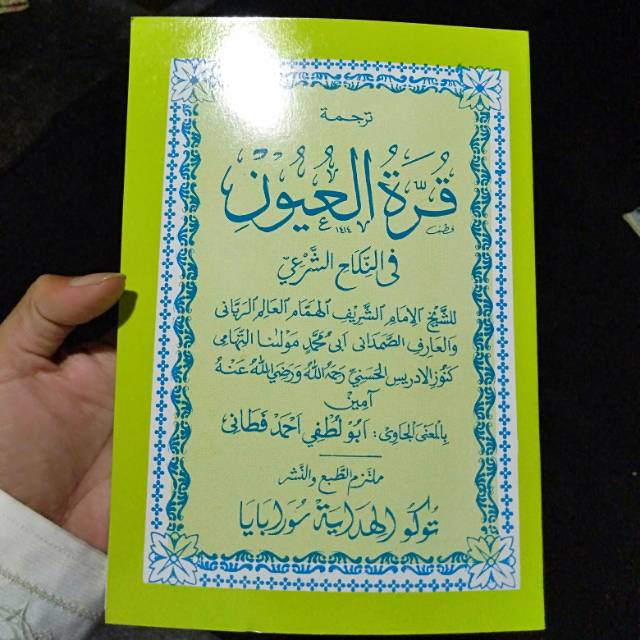 ترجمة
قُرَّةُ الْعُيُوْنِ
١٤١٤
فى النكاح الشَّرْعِيّ
للشيخ الإمام الشريف الهمام العالم الربانى
والعارف الصمدانى ابى محمد مولٰنا التهامى
كنوز الادريس الحسنيّ رحمه الله ورضي الله عنه
آمين
بالمعنى الجاوى : ابو لطفى احمد فطانى
ملتزم الطبع والنشر
توكو الهداية سورابايا